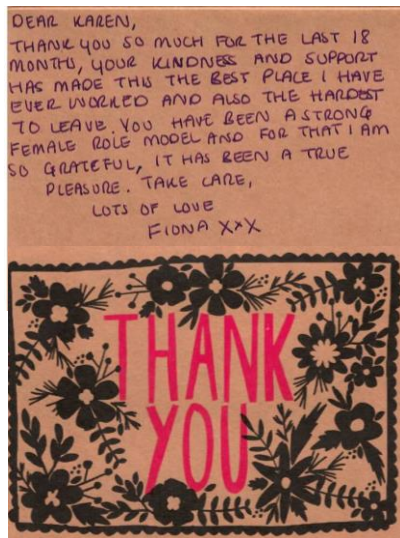 DEAR KAREN,
THANK YOU SO MUCH FOR THE LAST 18
MONTHS, YOUR KINDNESS AND SUPPORT
HAS MADE THIS THE BEST PLACE I HAVE
EVER WORKED AND ALSO THE HARDEST
TO LEAVE. YOU HAVE BEEN A STRONG
FEMALE ROLE MODEL AND FOR THAT I AM
SO GRATEFUL, IT HAS BEEN A TRUE
PLEASURE. TAKE CARE,
LOTS OF LOVE
FIONA XXX
THANK
YOU